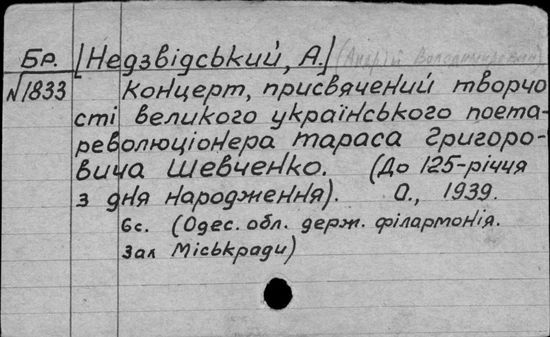 Бр. [Недзвідський, А.] (Андрій Володимирович)
№1833 Концерт, присвячений творчо
сті великого українського поета-
революціонера Тараса Григоро-
вича Шевченко. (До 125-річчя
з дня народження). О., 1939.
6с. (Одес. обл. держ. філармонія.
Зал Міськради)